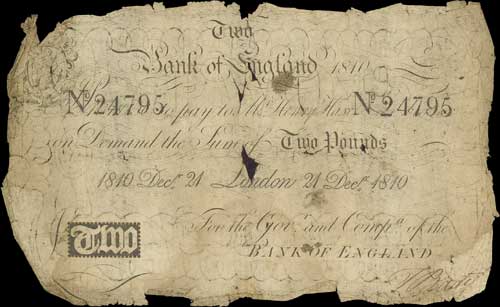 Two
Bank of England 1810
No 24795 to pay to Mr. Henry Hase No 24795
on Demand the Sum of Two Pounds
1810 Decr. 21 London 21 Decr. 1810
For the Govr. and Compa. of the
Two BANK OF ENGLAND